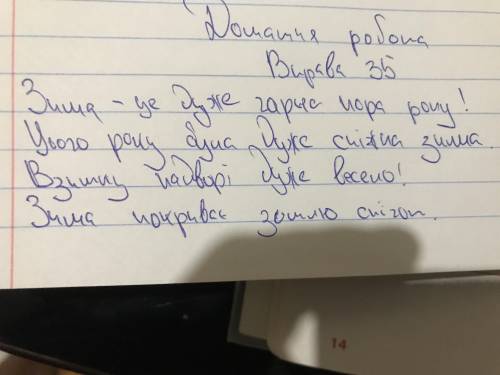 Домашня робота
Вправа 35
Зима - це дуже гарна пора року!
Цього року була дуже сніжна зима.
Взимку надворі дуже весело!
Зима покриває землю снігом.
14